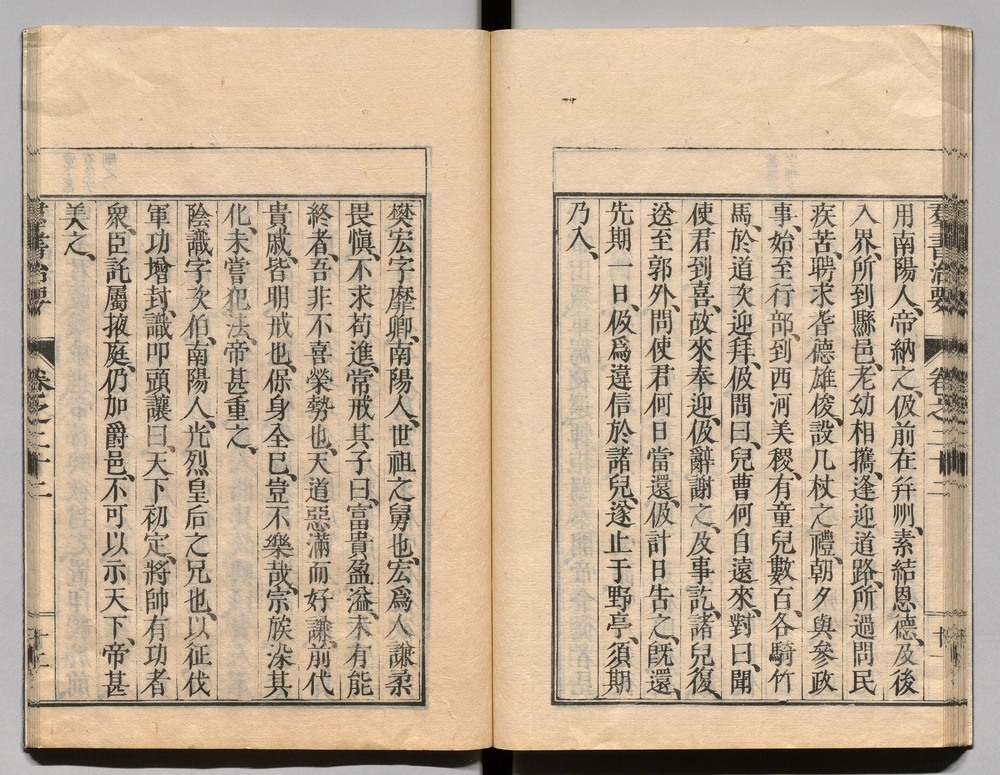 用南陽人、帝納之、伋前在幷州、素結恩德、及後
入界、所到縣邑、老幼相攜、逢迎道路、所過問民
疾苦、聘求耆德雄俊、設几杖之禮、朝夕與參政
事、始至行部、到西河美稷、有童兒數百、各騎竹
馬、於道次迎拜、伋問曰、兒曹何自遠來、對曰、聞
使君到喜、故來奉迎、伋辭謝之、及事訖、諸兒復
送至郭外、問使君何日當還、伋計日吿之、旣還、
先期一日、伋爲違信於諸兒、遂止于野亭、須期
乃入、
樊宏字靡卿、南陽人、世祖之舅也、宏爲人謙柔
畏愼、不求苟進、常戒其子曰、富貴盈溢、未有能
終者、吾非不喜榮勢也、天道惡滿而好謙、前代
貴戚、皆明戒也、保身全己、豈不樂哉、宗族染其
化、未嘗犯法、帝甚重之、
陰識字次伯、南陽人、光烈皇后之兄也、以征伐
軍功增封、識叩頭讓曰、天下初定、將帥有功者
衆、臣託屬掖庭、仍加爵邑、不可以示天下、帝甚
美之、
羣書治要 卷之二十二